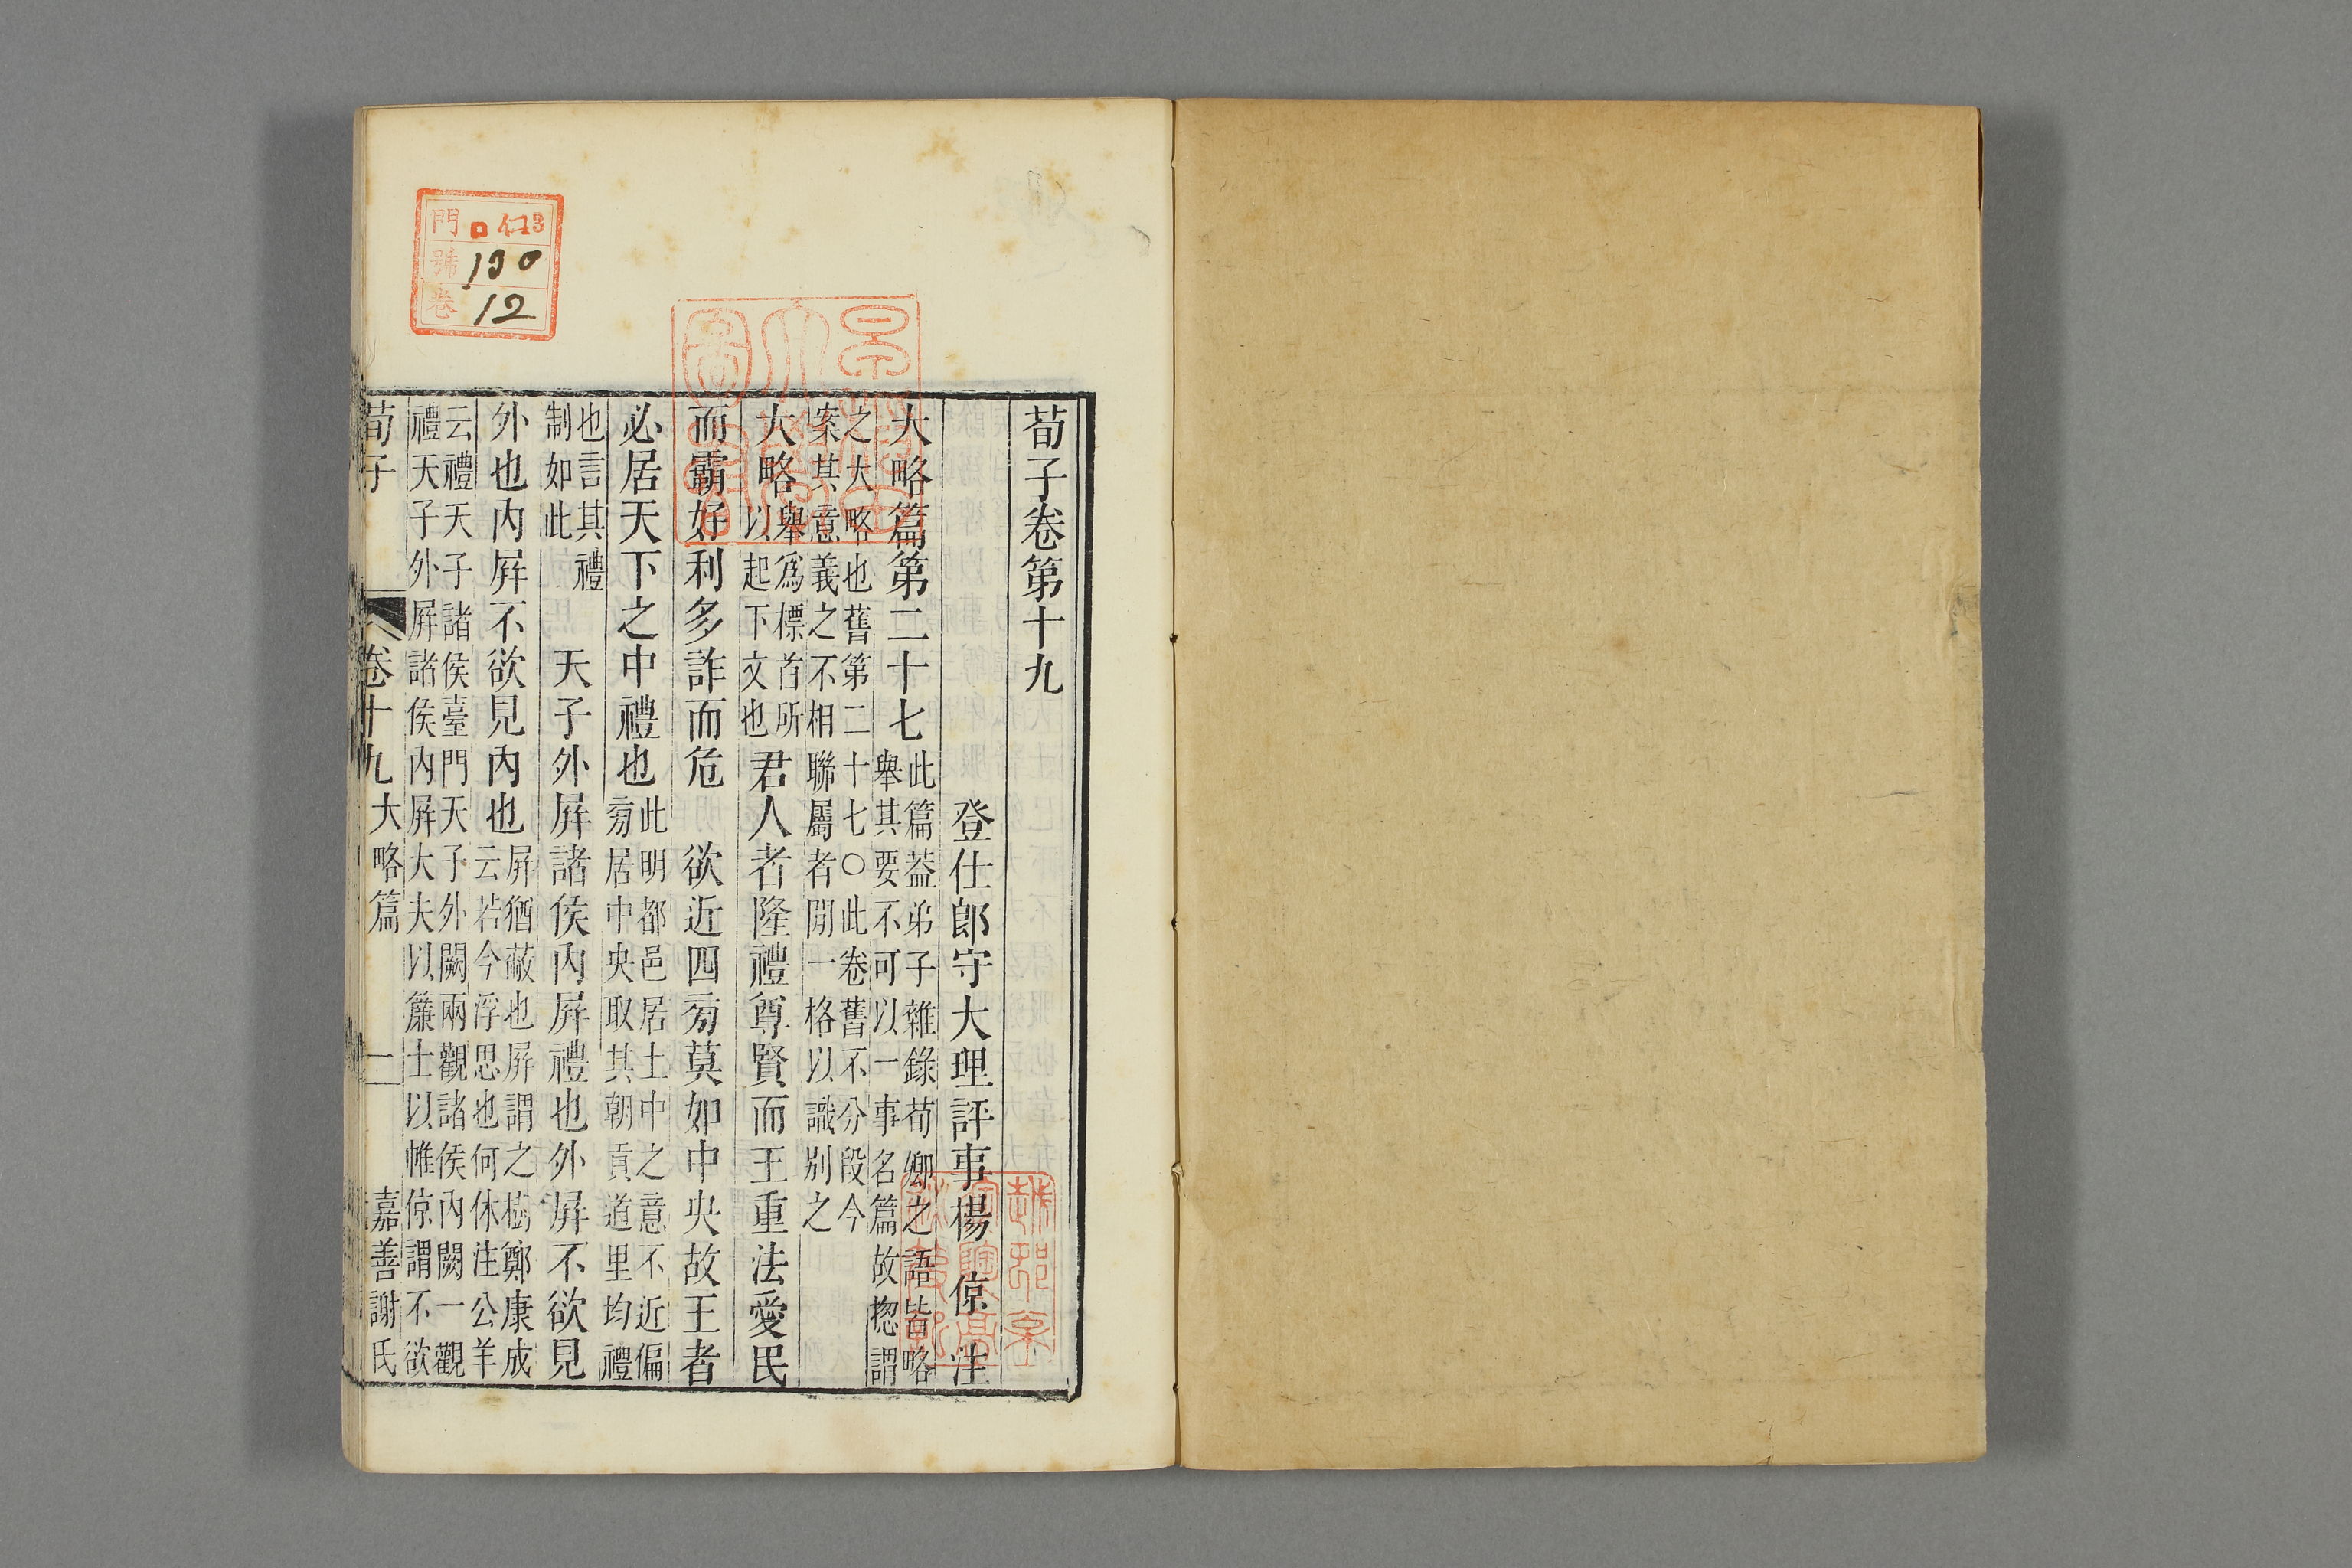 荀子卷第十九
登仕郎守大理評事楊 倞 注
大略篇第二十七此篇葢弟子雜錄荀卿之語皆略
舉其要不可以一事名篇故揔謂
之大略也舊第二十七○此卷舊不分段今
案其意義之不相聯屬者閒一格以識别之
大略舉爲標首所
以起下文也君人者隆禮尊賢而王重法愛民
而霸好利多詐而危 欲近四㫄莫如中央故王者
必居天下之中禮也此明都邑居土中之意不近偏
㫄居中央取其朝貢道里均禮
也言其禮
制如此 天子外屏諸侯内屏禮也外屏不欲見
外也内屏不欲見内也屏猶蔽也屏謂之樹鄭康成
云若今浮思也何休注公羊
云禮天子諸侯臺門天子外闕兩觀諸侯内闕一觀
禮天子外屏諸侯内屏大夫以簾士以帷倞謂不欲
荀子 卷十九 大略篇 一 嘉善謝氏
門 ロ 仁3
號 190
卷 12